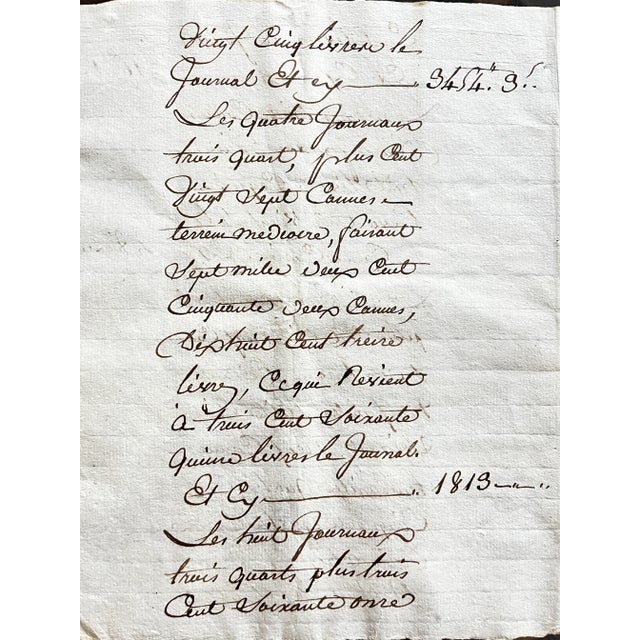 Vingt Cinq livres le
Journal Et cy ——— 3454.# 3.s
Les quatre Journaux
trois quart, plus Cent
Vingt Sept Cannes
terrein mediocre, faisant
Sept mille deux Cent
Cinquante deux Cannes,
Dixhuit Cent treize
livres, Ce qui Revient
à trois Cent Soixante
quinze livres le Journal.
Et Cy ——— 1813 — " — "
Les huit Journaux
trois quarts plus trois
Cent Soixante onze